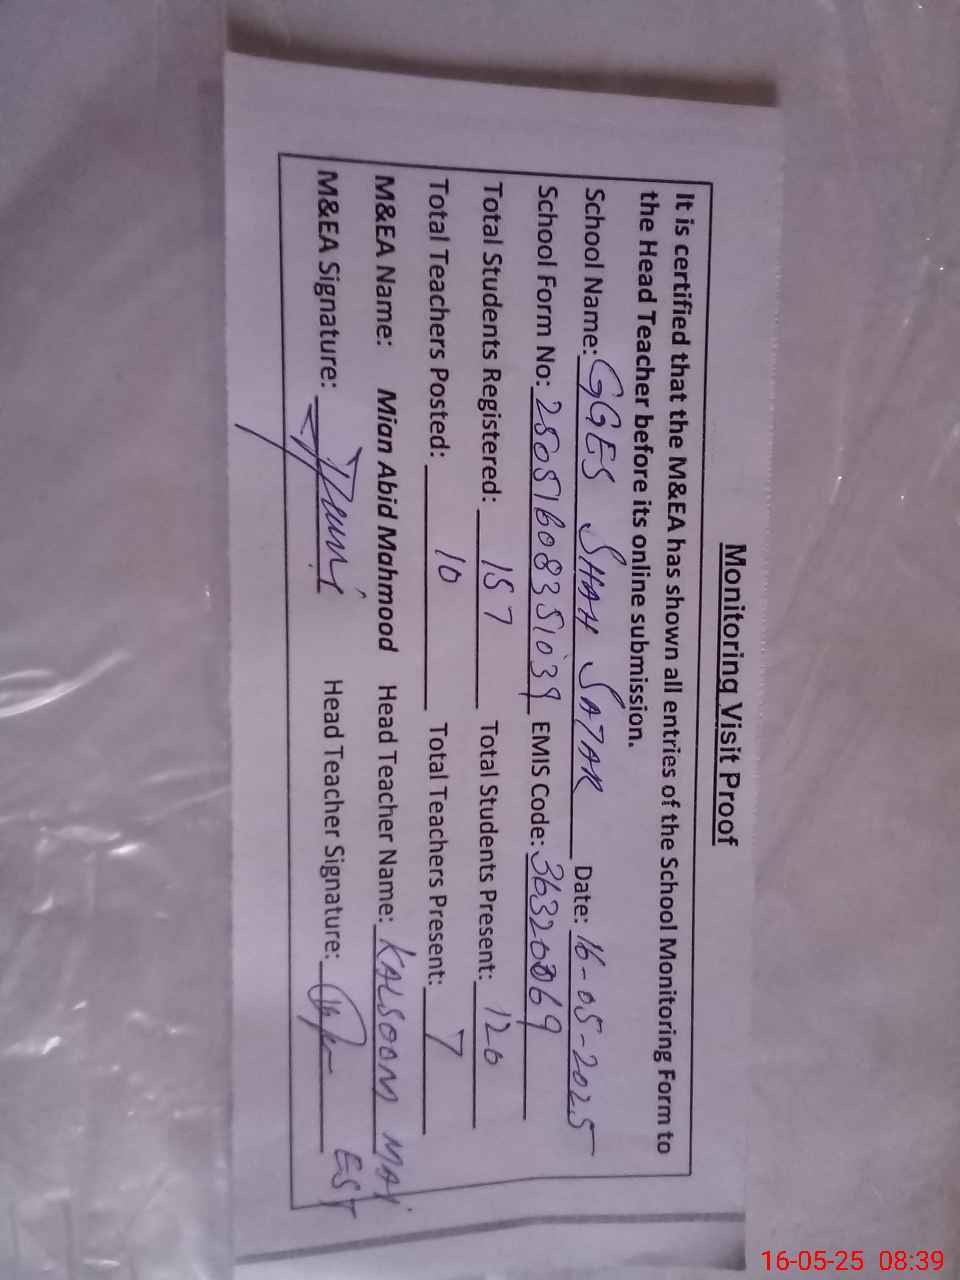 Monitoring Visit Proof
It is certified that the M&EA has shown all entries of the School Monitoring Form to
the Head Teacher before its online submission.
School Name: GGES SHAH SATAR Date: 16-05-2025
School Form No: 25051608351039 EMIS Code: 36320069
Total Students Registered: 157 Total Students Present: 120
Total Teachers Posted: 10 Total Teachers Present: 7
M&EA Name: Mian Abid Mahmood Head Teacher Name: KALSOOM MAI
M&EA Signature: Head Teacher Signature: EST
16-05-25 08:39